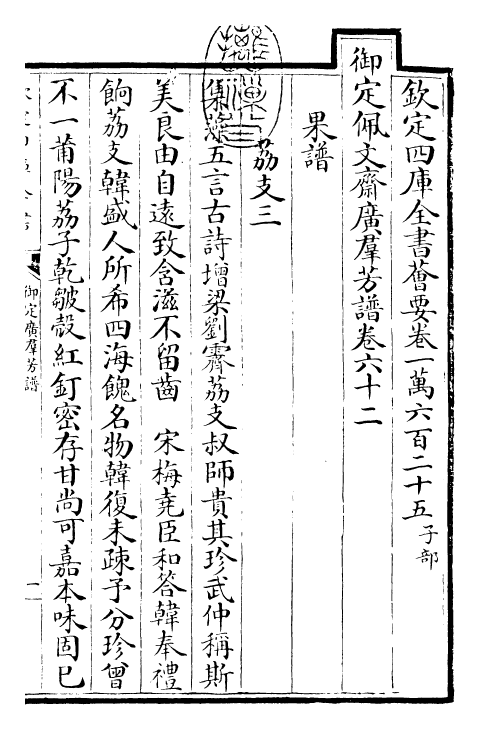 欽定四庫全書薈要卷一萬六百二十五子部
御定佩文齋廣羣芳譜卷六十二
果譜
荔支三
集藻五言古詩增梁劉霽荔支叔師貴其珍武仲稱斯
美良由自遠致含滋不留齒 宋梅堯臣和答韓奉禮
餉荔支韓盛人所希四海餽名物韓復未疎予分珍曾
不一莆陽荔子乾皺殼紅釘密存甘尚可嘉本味固已
御定廣羣芳譜
一